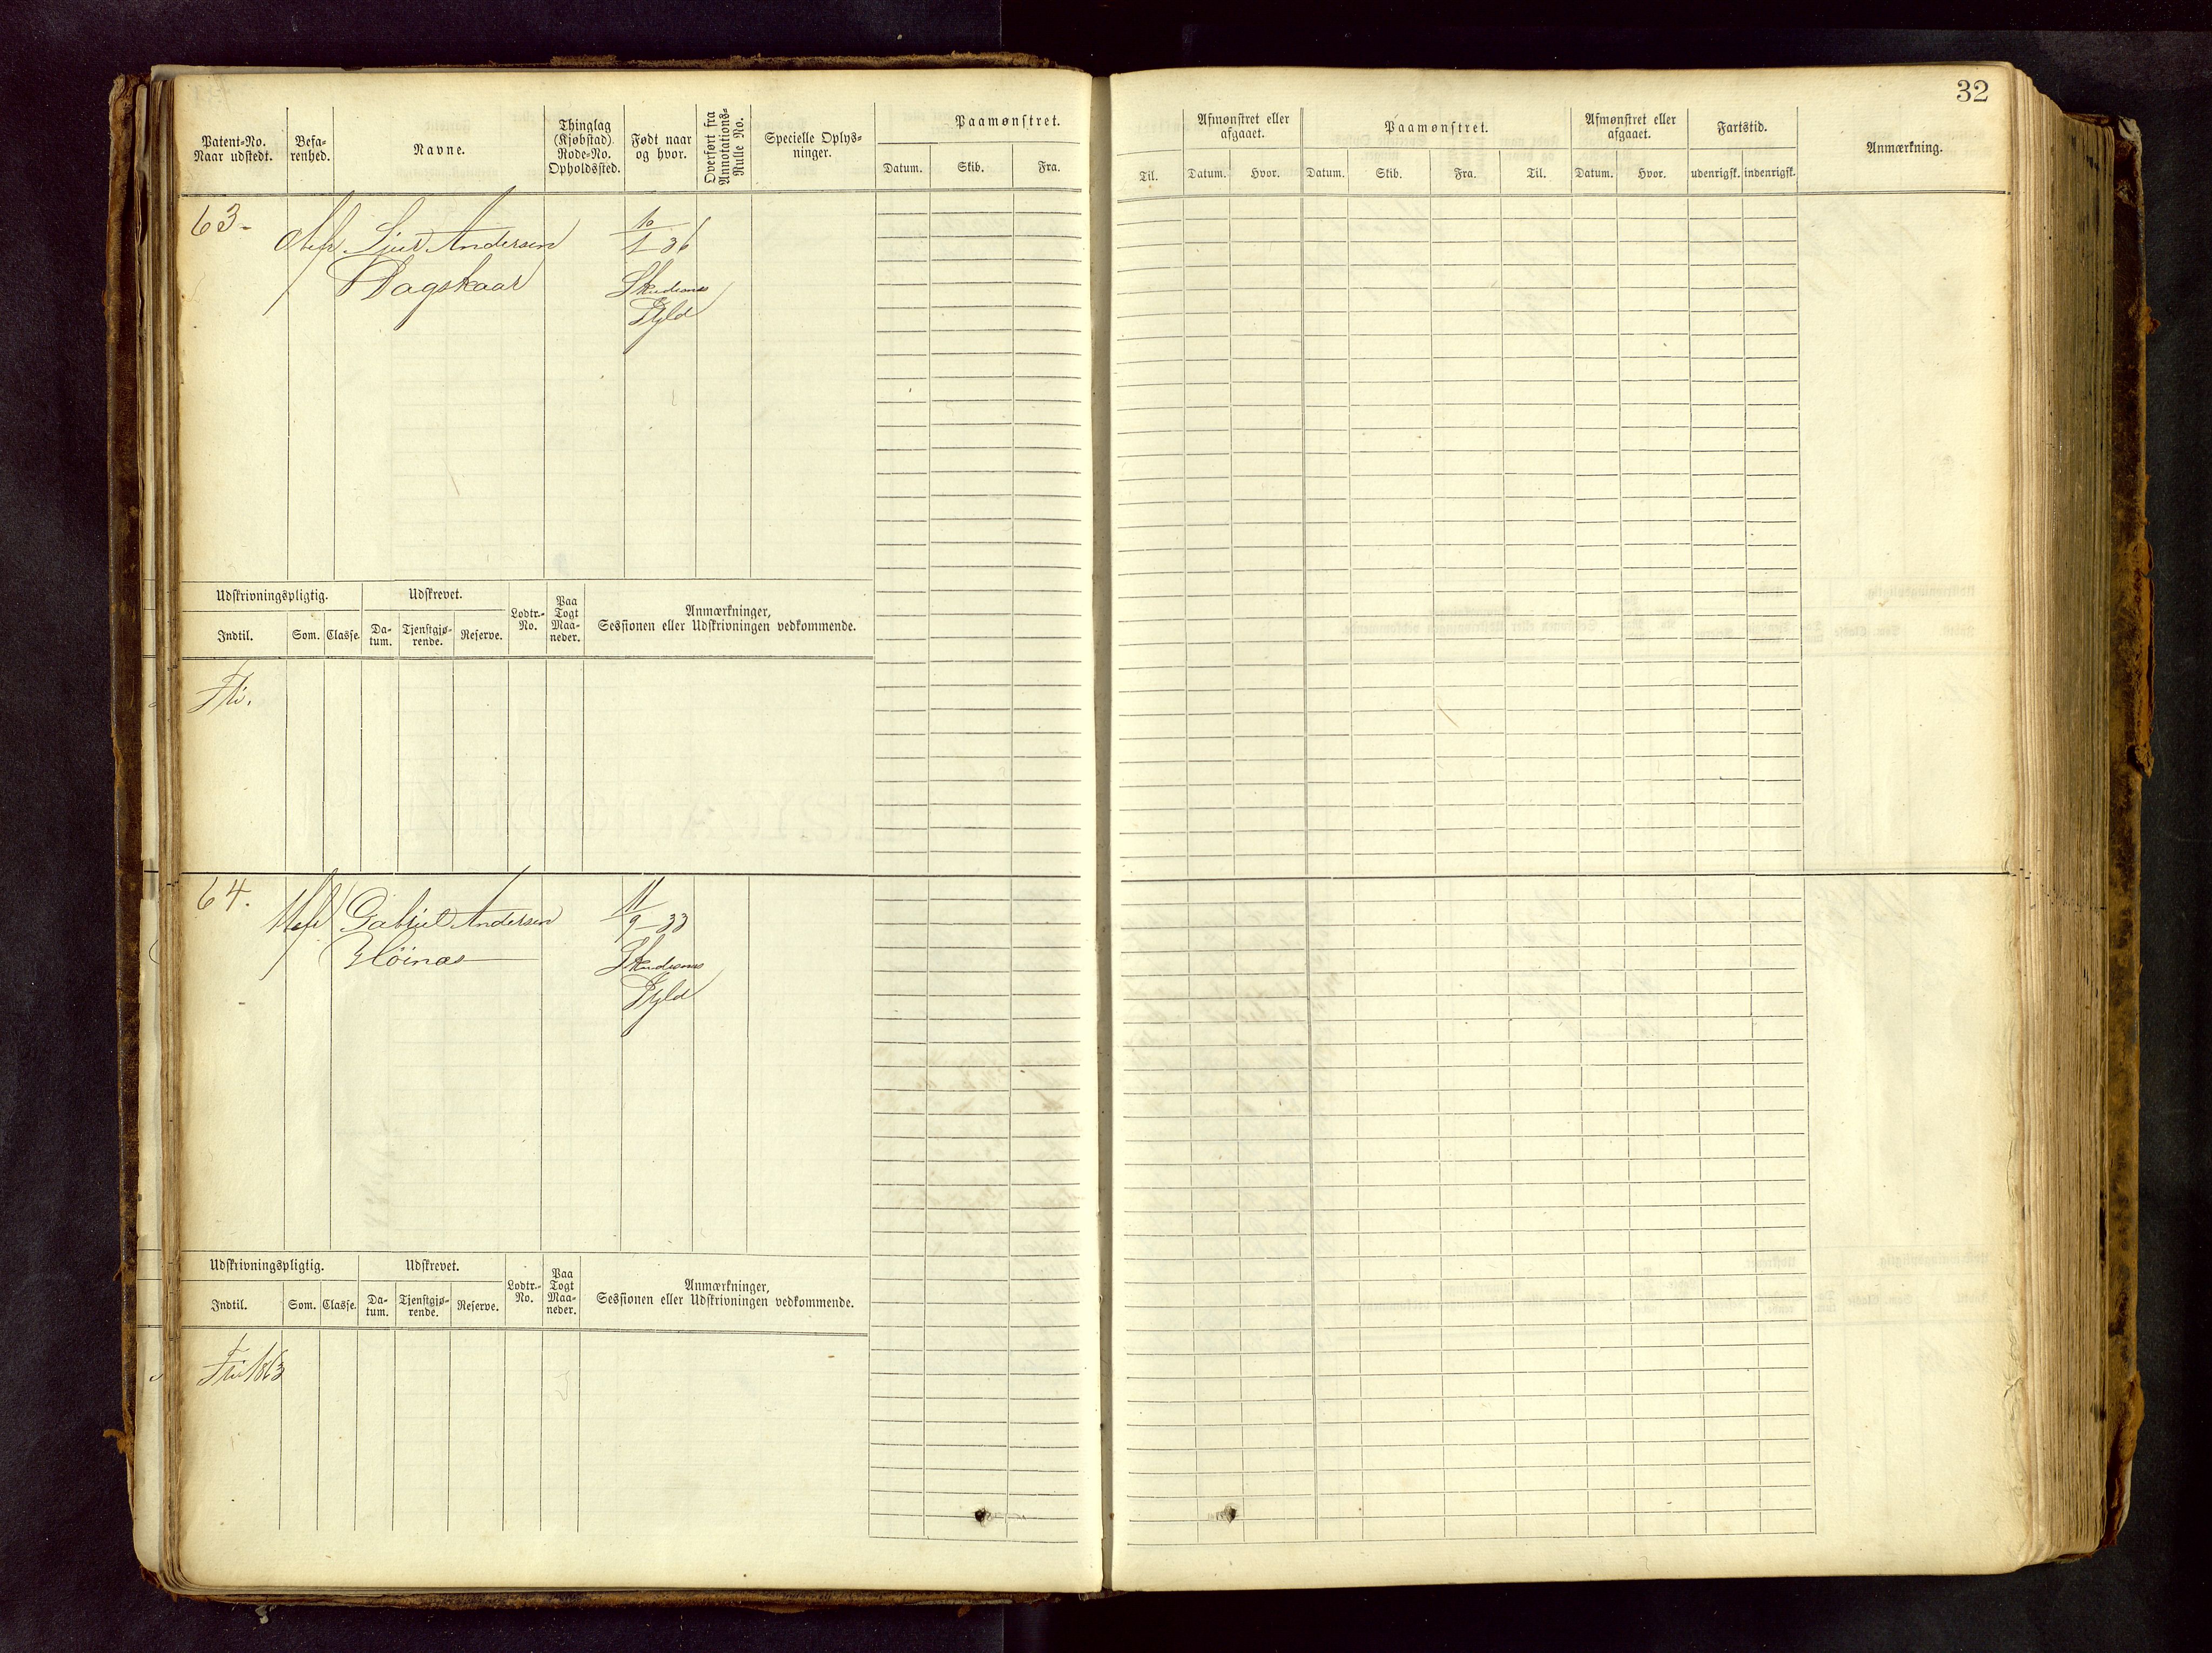 32
Patent-No. Naar udstedt.
Befa-renhed.
Navne.
Thinglag (Kjøbstad) Rode-No. Opholdssted.
Født naar og hvor.
Overført fra Annotations-Rulle No.
Specielle Oplys-ninger.
Paamønstret.
Datum. Skib. Fra.
Til.
Afmønstret eller afgaaet.
Datum. Hvor.
Paamønstret.
Datum. Skib. Fra. Til.
Afmønstret eller afgaaet.
Datum. Hvor.
Fartstid.
udenrigsk. indenrigsk.
Anmærkning.
63-
Andersen
Dagskaar
10/1-36
Skudesnes
Udskrivningspligtig.
Indtil. Som. Classe.
Udskrevet.
Da-tum. Tjenstgjø-rende. Reserve.
Lodtr.-No.
Paa Togt Maa-neder.
Anmærkninger,
Sessionen eller Udskrivningen vedkommende.
Fri.
64.
Gabriel Andersen
Høinæs
11/9-33
Skudesnes
Udskrivningspligtig.
Indtil. Som. Classe.
Udskrevet.
Da-tum. Tjenstgjø-rende. Reserve.
Lodtr.-No.
Paa Togt Maa-neder.
Anmærkninger,
Sessionen eller Udskrivningen vedkommende.
Fri 1863